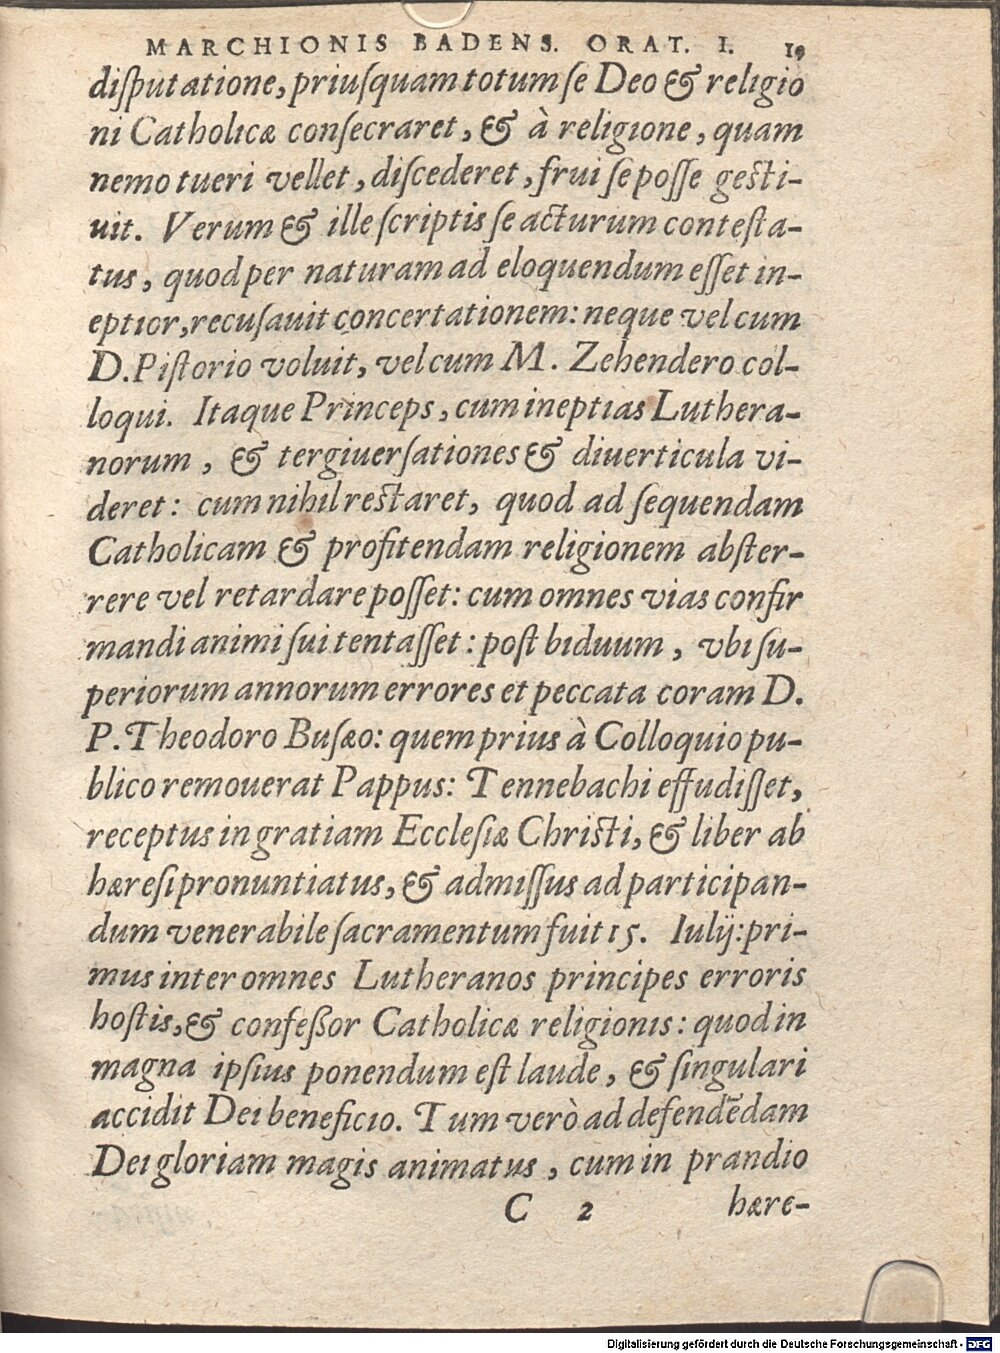 MARCHIONIS BADENS. ORAT. I. 19
diſputatione, priuſquam totum ſe Deo & religio
ni Catholicæ conſecraret, & à religione, quam
nemo tueri vellet, diſcederet, frui ſe poſſe geſti-
uit. Verum & ille ſcriptis ſe acturum conteſta-
tus, quod per naturam ad eloquendum eſſet in-
eptior, recuſauit concertationem: neque vel cum
D. Piſtorio voluit, vel cum M. Zehendero col-
loqui. Itaque Princeps, cum ineptias Luthera-
norum, & tergiuerſationes & diuerticula vi-
deret: cum nihil reſtaret, quod ad ſequendam
Catholicam & profitendam religionem abſter-
rere vel retardare poſſet: cum omnes vias confir
mandi animi ſui tentaſſet: poſt biduum, vbi ſu-
periorum annorum errores et peccata coram D.
P. Theodoro Buſæo: quem prius à Colloquio pu-
blico remouerat Pappus: Tennebachi effudiſſet,
receptus in gratiam Eccleſiæ Chriſti, & liber ab
hæreſi pronuntiatus, & admiſſus ad participan-
dum venerabile ſacramentum fuit 15. Iulij: pri-
mus inter omnes Lutheranos principes erroris
hoſtis, & confeßor Catholicæ religionis: quod in
magna ipſius ponendum eſt laude, & ſingulari
accidit Dei beneficio. Tum verò ad defendēdam
Dei gloriam magis animatus, cum in prandio
C 2 hære-
Digitalisierung gefördert durch die Deutsche Forschungsgemeinschaft - DFG